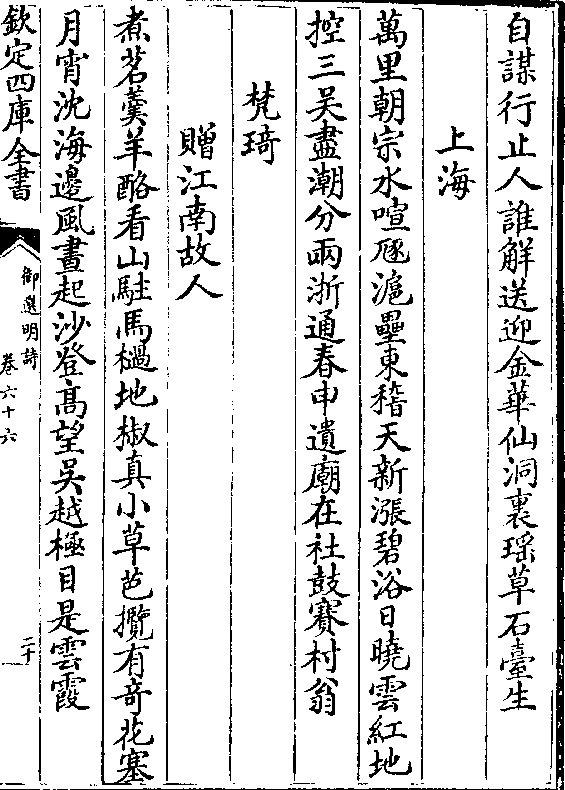 自謀行止人誰解送迎金華仙洞裏瑶草石臺生
上海
萬里朝宗水喧豗滬壘東稽天新漲碧浴日曉雲紅地
控三吳盡潮分兩浙通春申遺廟在社鼓賽村翁
梵琦
贈江南故人
煮茗羹羊酪看山駐馬檛地椒真小草芭攬有奇花塞
月宵沈海邊風晝起沙登髙望吳越極目是雲霞
欽定四庫全書
御選明詩
卷六十六
二十